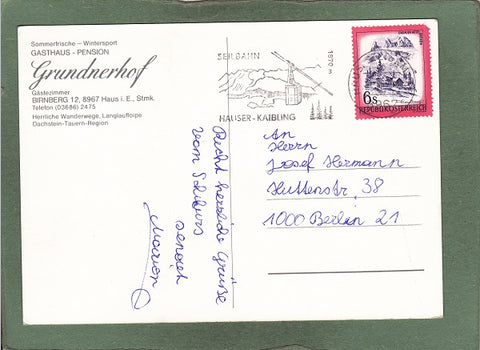 Sommerfrische – Wintersport
GASTHAUS - PENSION
Grundnerhof
Gästezimmer
BIRNBERG 12, 8967 Haus i. E., Stmk.
Telefon (03686) 2475
Herrliche Wanderwege, Langlaufloipe
Dachstein-Tauern-Region
SEILBAHN
1870 m
HAUSER-KAIBLING
6s
REPUBLIK ÖSTERREICH
An
Herrn
Josef Hermann
Huttenstr. 38
1000 Berlin 21
Recht herzliche Grüße
vom Schikurs
sendet
Marion